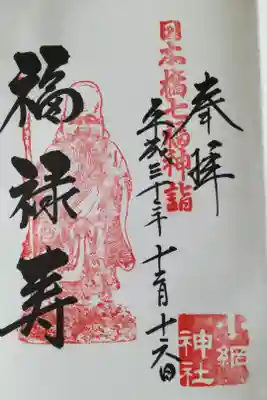 奉拝
日本橋七福神詣
平成 年 月十六日
福禄寿
小網
神社